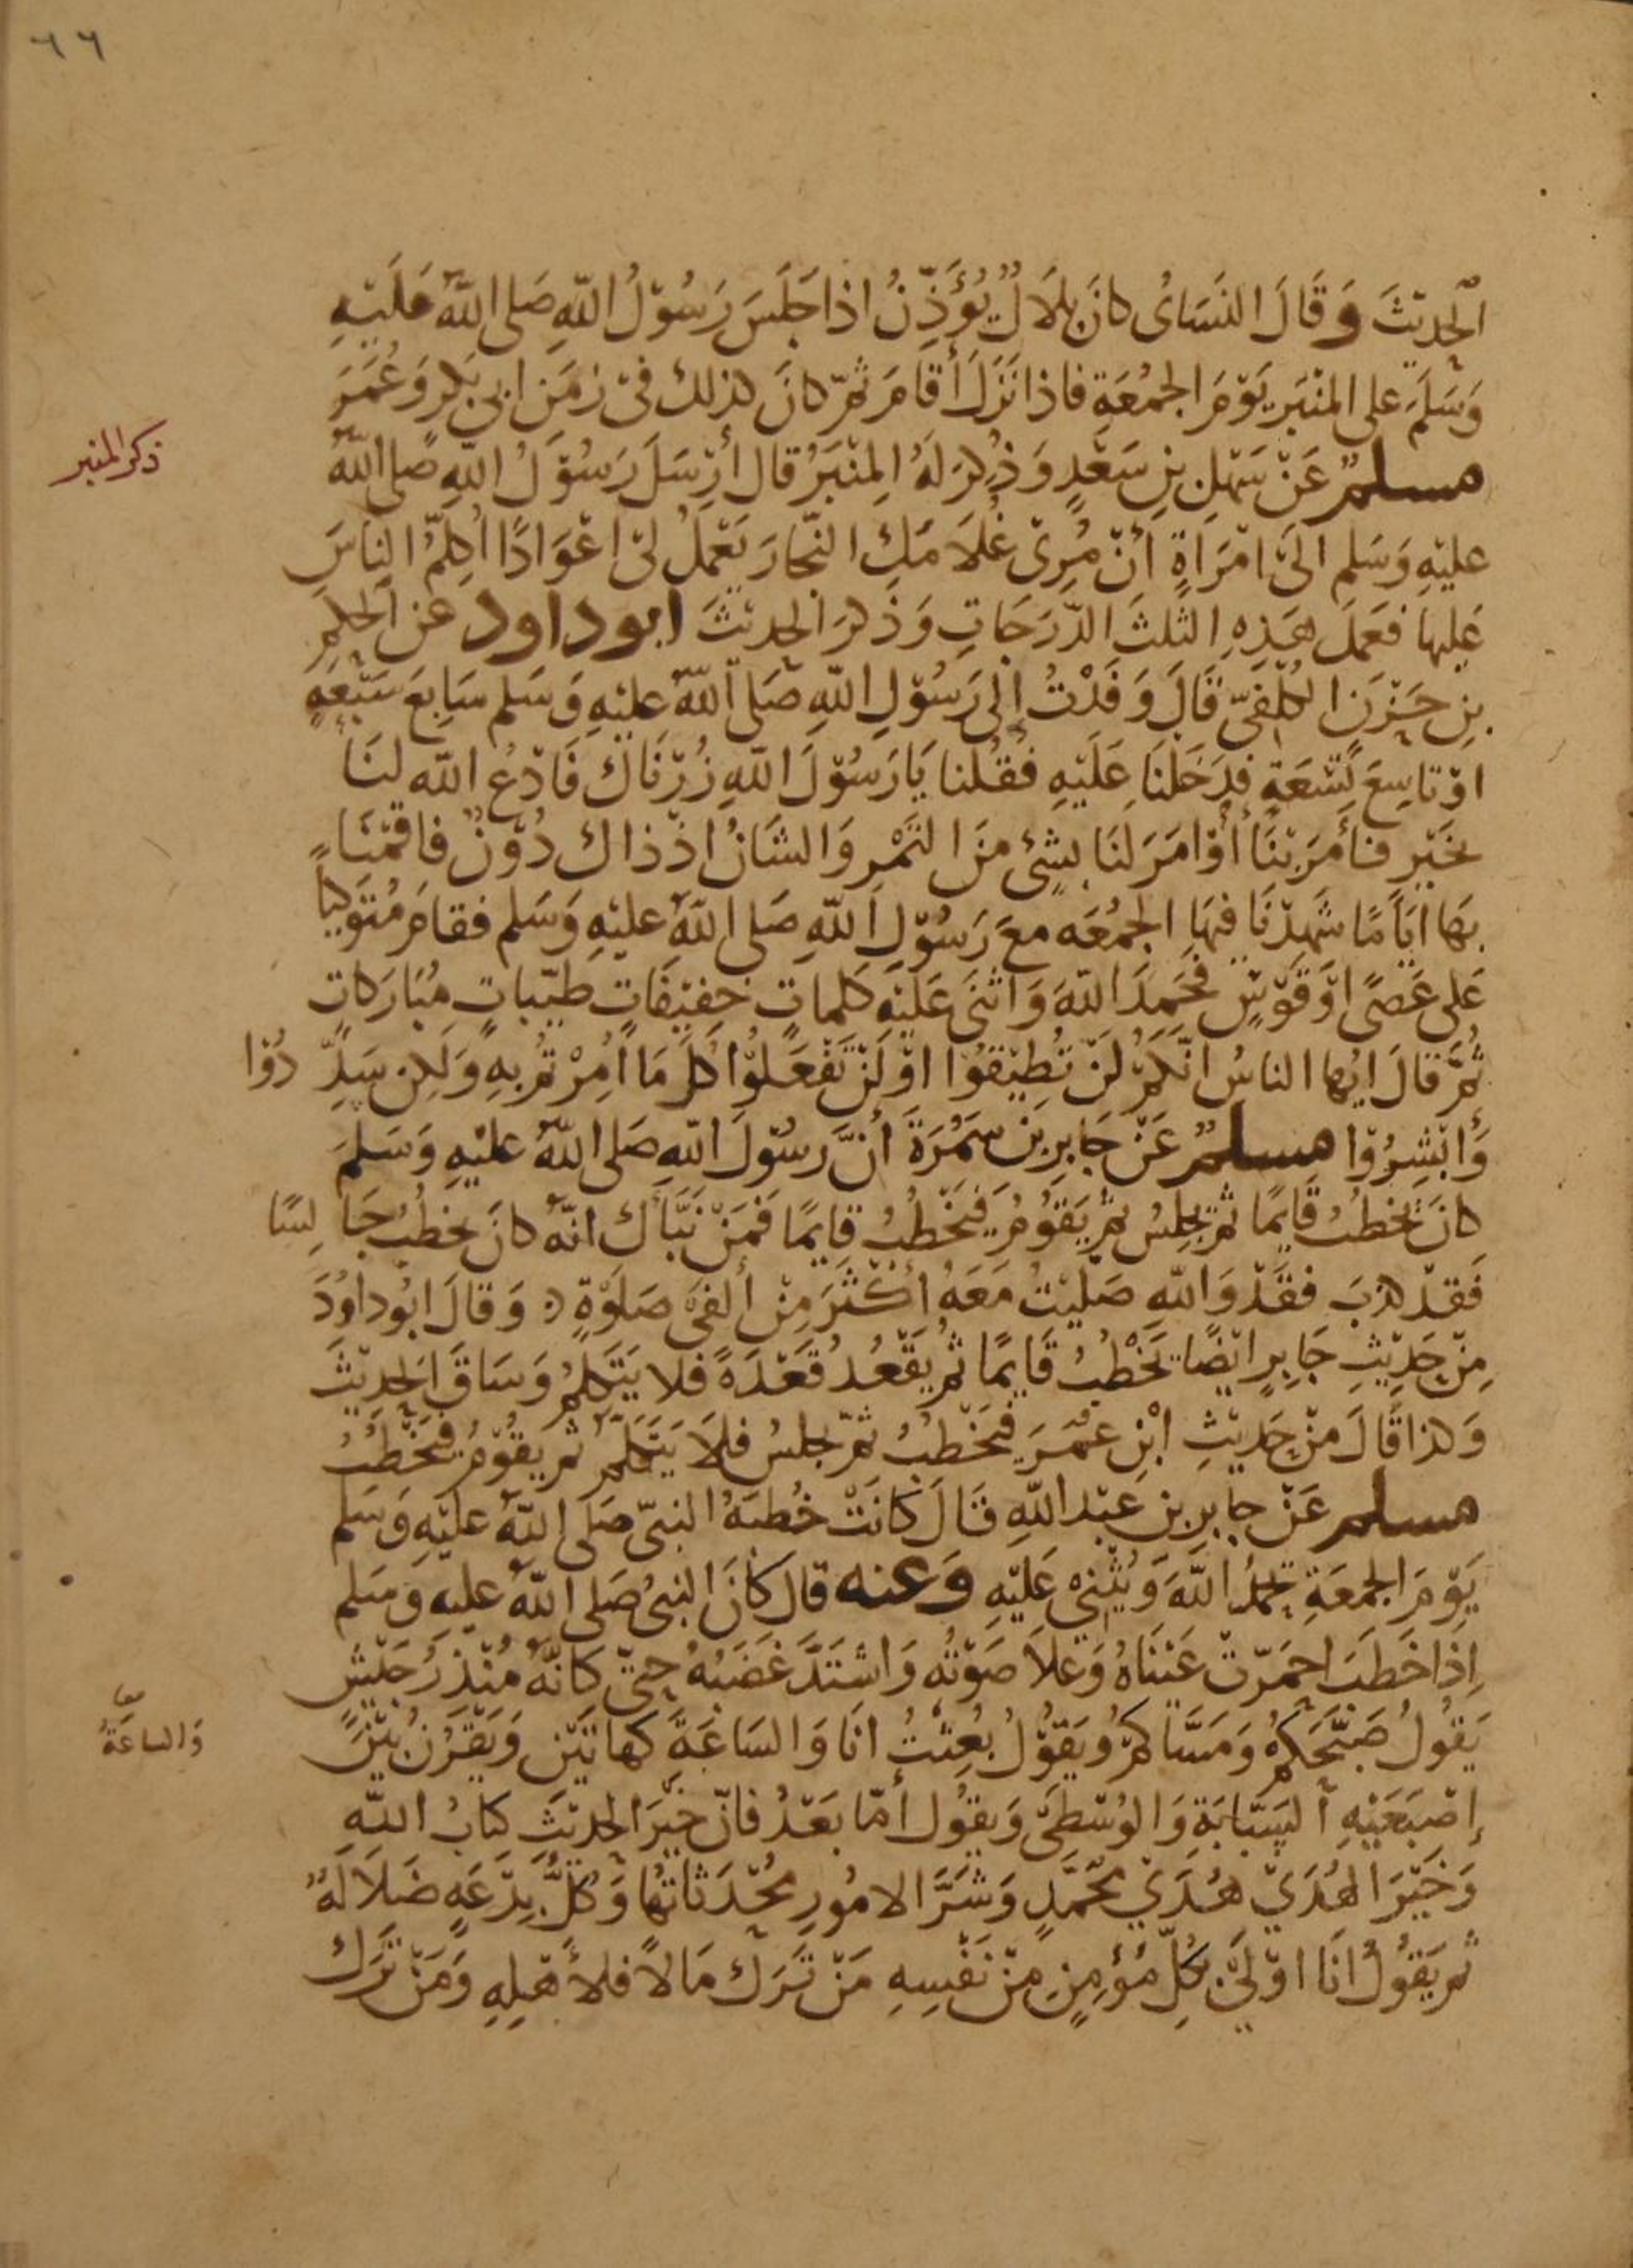 ٦٦
الْحَدِيْثَ وَقَالَ النَّسَائُ كانَ بِلَالٌ يُؤَذِّنُ اذا جَلَسَ رَسُوْلُ اللّٰهِ صَلى اللّٰهُ عَلَيْهِ
وَسَلَمَ على المنْبَرِ يَوْمَ الجمُعَةِ فاذا نَزَلَ أقامَ ثمّ كانَ كذلك فىْ زمَنِ ابى بَكرٍ وَعُمَرَ
ذكر المنبر
مسلمٌ عَنْ سَهْلِ بنِ سَعْدٍ وَذُكِرَ لهُ المِنْبَرُ قال أرْسَلَ رَسُوْلُ اللهِ صَلى اللّٰهُ
عليْهِ وَسَلم الىَ امْرَاةٍ أنْ مُرِىْ غُلَامَكِ النّجارَ يَعْملْ لىْ اعْوَادًا أكلِّمُ الناسَ
عَليها فعَملَ هَذِهِ الثلثَ الدّرَجَاتِ وَذكرَ الحديْثَ ابوداود عن الحكمِ
بنِ حَزْنِ الكُلَفىّ قَالَ وَفَدْتُ إلى رَسُوْلِ اللّٰهِ صَلى اللّٰهُ عليْهِ وَسَلم سَابِعَ سَبْعَةٍ
اوْ تاسِعَ تِسْعَةٍ فدَخَلنَا عَلَيْهِ فقُلنا يَارَسُوْلَ اللّٰهِ زُرْنَاكَ فَادْعُ اللّٰه لنَا
بخَيْرٍ فأمَرَ بنَا أوْ امَرَ لنَا بشئ منَ التمْرِ وَالشانُ اذْ ذاكَ دُوْنٌ فاقمْنَا
بهَا ايّامًا شَهِدْنَا فيهَا الجمُعَه معَ رَسُوْلِ اللّٰهِ صَلى اللّٰهُ عليْهِ وَسَلم فقامَ مُتَوَكياً
عَلى عَصًى اوْ قَوْسٍ فحَمِدَ اللّٰهَ وَاثنىَ عَلَيْهِ كلماتٍ خفِيْفَاتٍ طيّباتٍ مُبَارَكاتٍ
ثمَّ قالَ ايُها الناسُ انّكمْ لنْ تُطِيْقُوْا اوْ لَنْ تَفْعَلُوْا كلَ مَا اُمِرْتمُ بهِ وَلَكن سَدِّ دُوْا
وَأبْشِرُوْا مسلمٌ عَنْ جَابِرِ بن سَمُرَةَ أنَّ رسُوْلَ اللهِ صَلى اللّٰهُ عليْهِ وَسَلمَ
كانَ يخطبُ قَايمًا ثم يجلِسُ ثمّ يَقوُمُ فَيَخْطبُ قايمًا فمَنْ نَبَّأكَ انّه كانَ يخطبُ جَا لِسًا
فَقدْ كذبَ فقَدْ وَاللّٰهِ صَليْتُ مَعَهُ أكْثَرَ مِنْ ألفىْ صَلوٰةٍ وَقالَ ابُو داوُدَ
مِنْ حَدِيْثِ جَابِرٍ ايْضًا يَخْطبُ قَايمًا ثم يقْعُدُ قَعْدَةً فلا يَتَكلمُ وَسَاقَ الحَدِيْثَ
وَكذا قَالَ منْ حَدِيْثِ ابْنِ عُمَرَ فيَخْطبُ ثمّ يجلسُ فلَا يَتكَلمُ ثم يَقُوْمُ فيَخْطبُ
مسلم عَنْ جابِرِ بنِ عَبْدِ اللّٰهِ قَالَ كَانَتْ خُطبَةُ النبىّ صَلى اللّٰهُ عليْهِ وَسَلم
يَوْمَ الجمعَةِ يحمَدُ اللّٰهَ وَيُثْنِىْ عَلَيْهِ وَعنه قالَ كَانَ النبىُ صَلى اللّٰهُ عليهِ وَسَلم
إذا خَطَبَ احمَرّتْ عَيْنَاهُ وَعَلاَ صَوْتُه وَاشتَدَّ غَضَبُهُ حتّىْ كَانّهُ مُنْذِرُ جَيْشٍ
يَقولُ صَبَّحَكمْ وَمَسَّاكمْ وَيَقوُلُ بُعِثْتُ انَا وَالسَاعَةَ كهاتَيْنِ وَيَقْرُنُ بَيْنَ
وَالساعَةُ
إصْبَعَيْهِ السَبّابَةِ وَالوُسْطىَ وَيقوُل أمّا بَعْدُ فانّ خَيْرَ الحديْثِ كتابُ اللّٰهِ
وَخَيْرَ الهُدَيْ هُدَيْ محُمّدٍ وَشرَّ الامُورِ محُدَثاتهَا وَكلُّ بِدْعَةٍ ضَلَالَةٌ
ثم يَقُولُ انَا اوْلىٰ بكلّ مُؤْمِنٍ مِنْ نَفسِهِ مَنْ تَرَكَ مَالاً فلأهْلِهِ وَمَنْ تَرَكَ